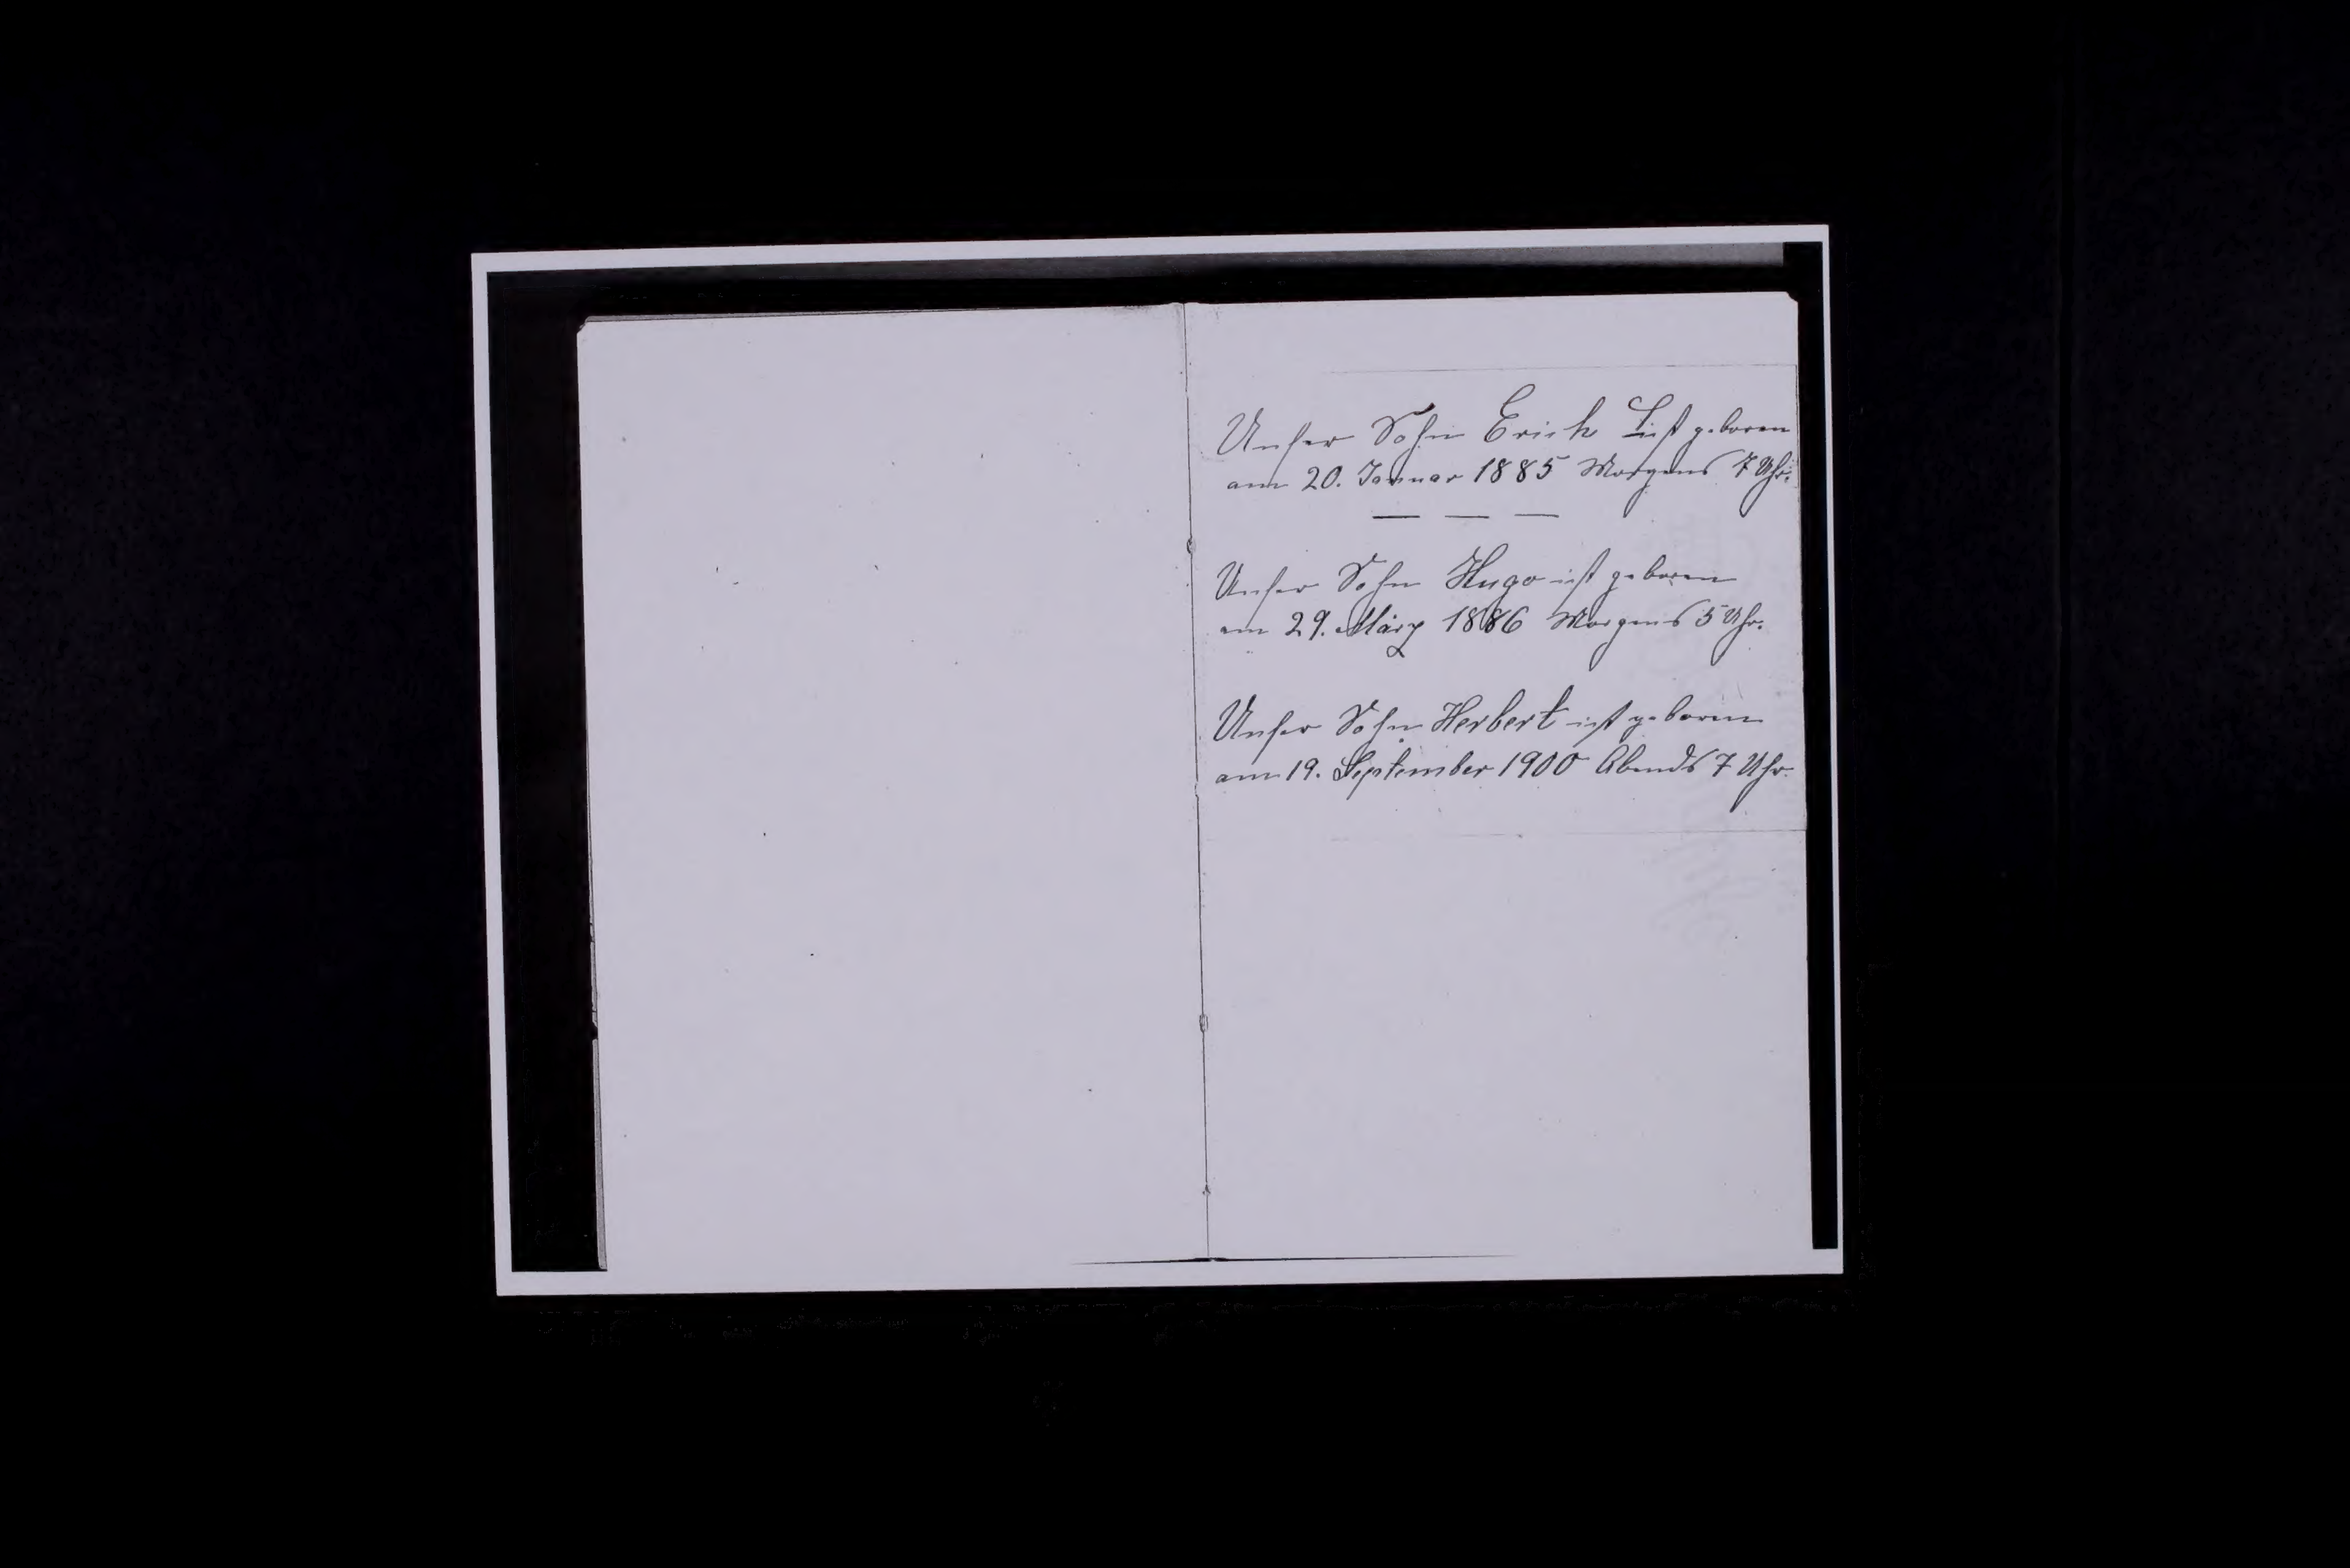 Unser Sohn Erich ist geboren
am 20. Januar 1885 Morgens 7 Uhr.
— — —
Unser Sohn Hugo ist geboren
am 29. März 1886 Morgens 5 Uhr.
Unser Sohn Herbert ist geboren
am 19. September 1900 Abends 7 Uhr.